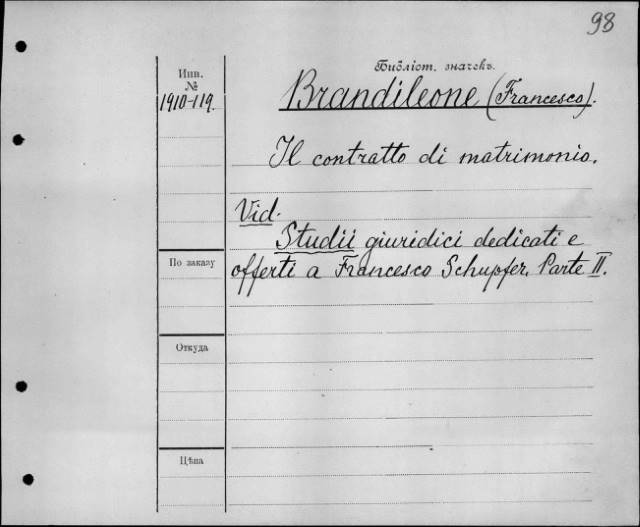 98
Библіот. значекъ.
Инв.
№
1910-119.
Brandileone (Francesco).
Il contratto di matrimonio.
Vid.
Studii giuridici dedicati e
offerti a Francesco Schupfer. Parte II.
По заказу
Откуда
Цѣна